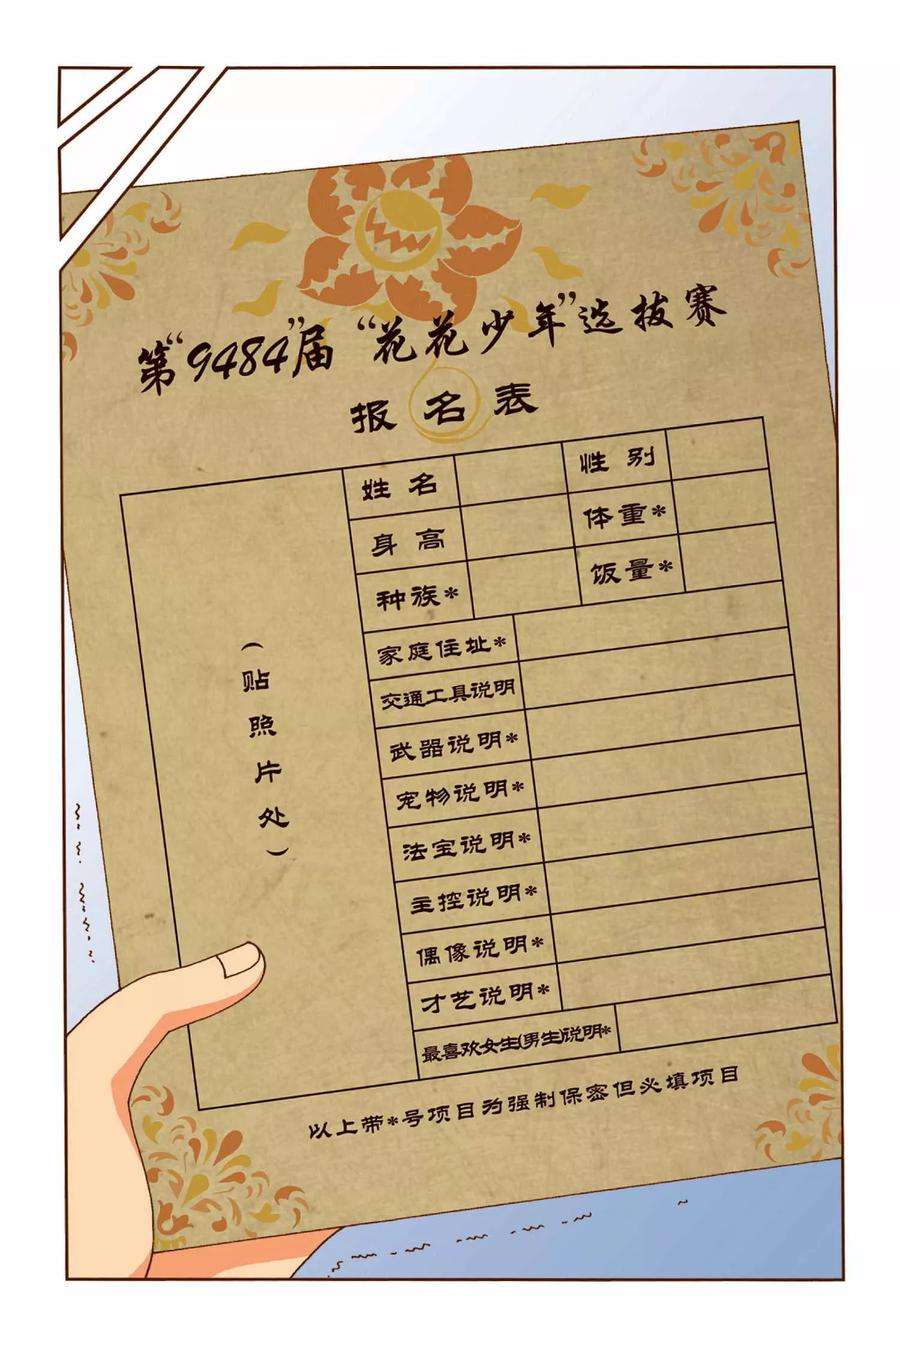 第“9484”届“花花少年”选拔赛
报名表
（贴照片处）
姓名 性别
身高 体重*
种族* 饭量*
家庭住址*
交通工具说明
武器说明*
宠物说明*
法宝说明*
主控说明*
偶像说明*
才艺说明*
最喜欢女生(男生)说明*
以上带*号项目为强制保密但必填项目